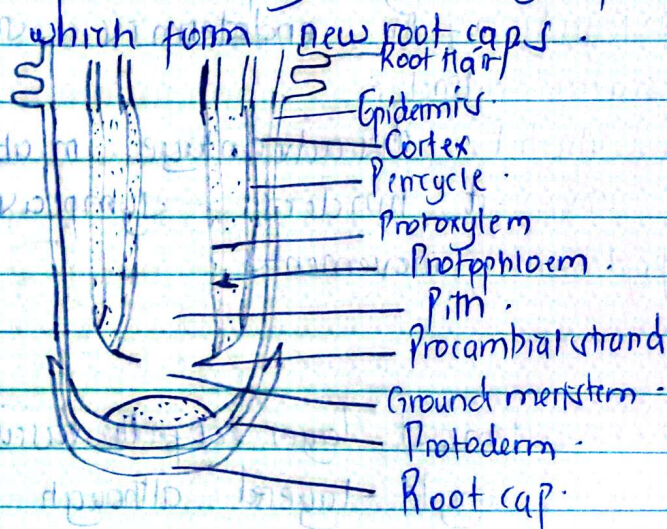 which form new root caps.
Root Hair
Epidermis.
Cortex
Pericycle.
Protoxylem
Protophloem.
Pith.
Procambial strand
Ground meristem
Protoderm.
Root cap.